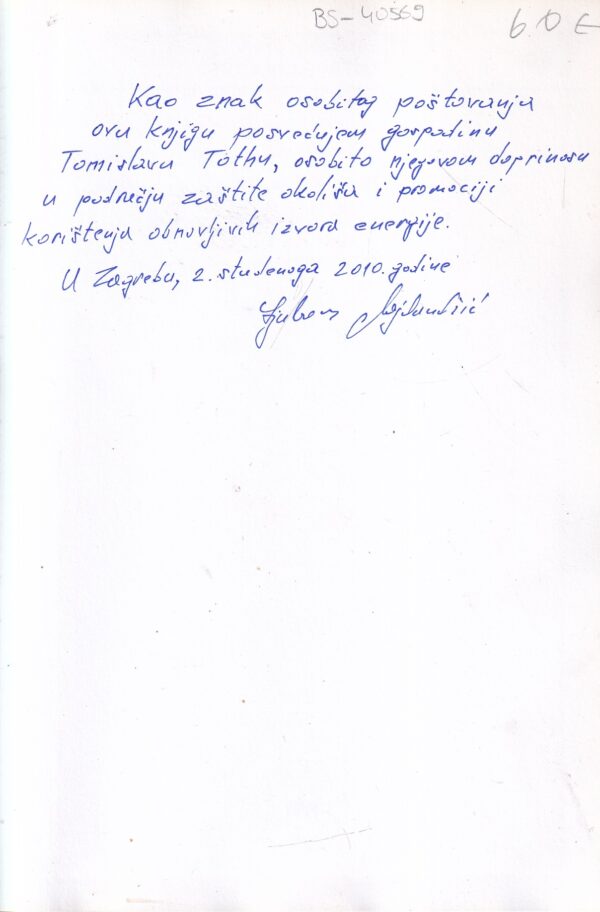 BS-40569
60 €
Kao znak osobitog poštovanja
ovu knjigu posvećujem gospodinu
Tomislavu Tóthu, osobito njegovom doprinosu
u području zaštite okoliša i promociji
korištenja obnovljivih izvora energije.
U Zagrebu, 2. studenoga 2010. godine
Ljubomir Majdandžić